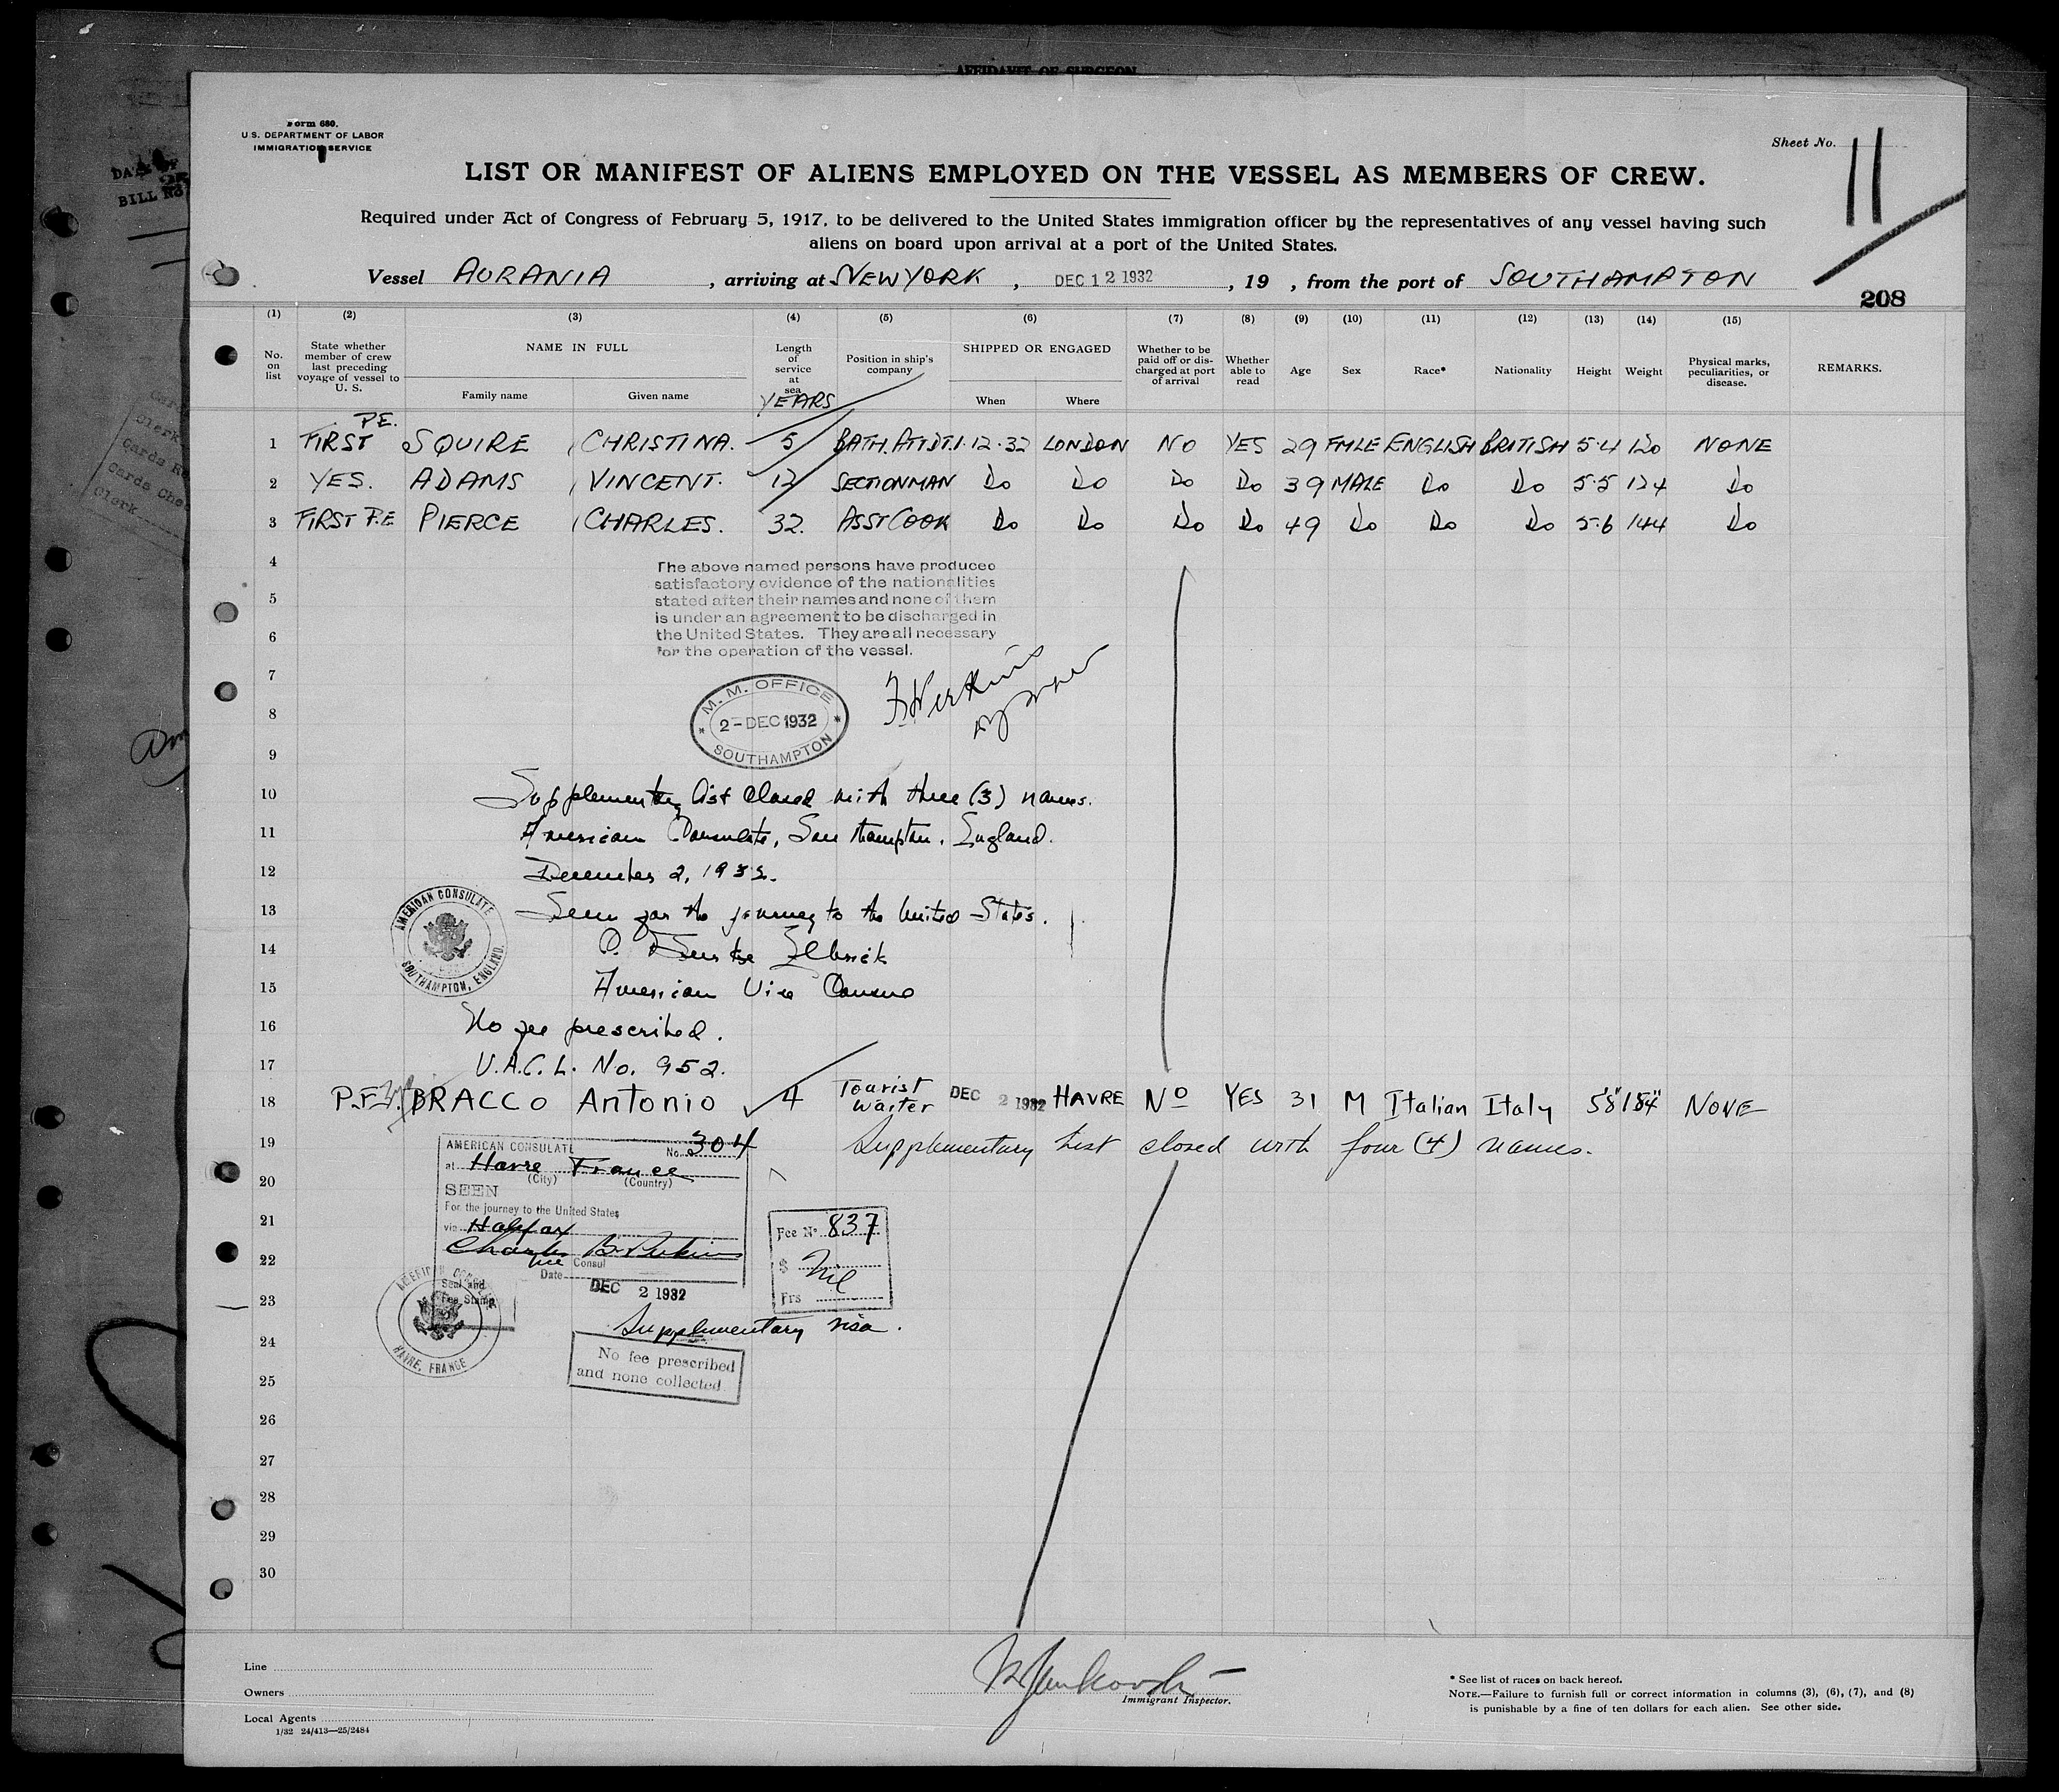 AFFIDAVIT OF SURGEON
Form 680.
U.S. DEPARTMENT OF LABOR
IMMIGRATION SERVICE
Sheet No. 11
LIST OR MANIFEST OF ALIENS EMPLOYED ON THE VESSEL AS MEMBERS OF CREW.
Required under Act of Congress of February 5, 1917, to be delivered to the United States immigration officer by the representatives of any vessel having such
aliens on board upon arrival at a port of the United States.
Vessel AURANIA, arriving at NEW YORK, DEC 12 1932, 19 , from the port of SOUTHAMPTON
208
(1) (2) (3) (4) (5) (6) (7) (8) (9) (10) (11) (12) (13) (14) (15)
No. on list State whether member of crew last preceding voyage of vessel to U. S. NAME IN FULL Family name Given name Length of service at sea YEARS Position in ship's company SHIPPED OR ENGAGED When Where Whether to be paid off or discharged at port of arrival Whether able to read Age Sex Race* Nationality Height Weight Physical marks, peculiarities, or disease. REMARKS.
P.E.
1 FIRST SQUIRE, CHRISTINA. 5 BATH. ATTDT. 1.12.32 LONDON NO YES 29 FMLE ENGLISH BRITISH 5.4 120 NONE
2 YES. ADAMS, VINCENT. 12 SECTIONMAN Do Do Do Do 39 MALE Do Do 5.5 124 Do
3 FIRST P.E PIERCE, CHARLES. 32. ASST COOK Do Do Do Do 49 Do Do Do 5.6 144 Do
4
The above named persons have produced
satisfactory evidence of the nationalities
5
stated after their names and none of them
is under an agreement to be discharged in
6
the United States. They are all necessary
for the operation of the vessel.
7
8
M. M. OFFICE
2-DEC 1932
SOUTHAMPTON
9
10 Supplementary list closed with three (3) names.
11 American Consulate, Southampton, England.
12 December 2, 1932.
13 Seen for the journey to the United States.
AMERICAN CONSULATE
SOUTHAMPTON, ENGLAND.
14
15 American Vice Consul
16 No fee prescribed.
17 U.A.C.L. No. 952.
18 P.F. BRACCO Antonio 4 Tourist Waiter DEC 2 1932 HAVRE NO YES 31 M Italian Italy 5'8" 154 NONE
19 Supplementary list closed with four (4) names.
AMERICAN CONSULATE No. 304
at Havre France
(City) (Country)
20
SEEN
For the journey to the United States
21
via Halifax
Charles B. Perkins
22
Vice Consul
Date DEC 2 1932
Fee No 837
$ Nil
Frs
Seal and
Fee Stamp
AMERICAN CONSULATE
HAVRE, FRANCE
23
Supplementary visa.
24
No fee prescribed
and none collected
25
26
27
28
29
30
Line
Owners
Local Agents
1/32 24/413—25/2484
Immigrant Inspector.
* See list of races on back hereof.
NOTE.—Failure to furnish full or correct information in columns (3), (6), (7), and (8)
is punishable by a fine of ten dollars for each alien. See other side.